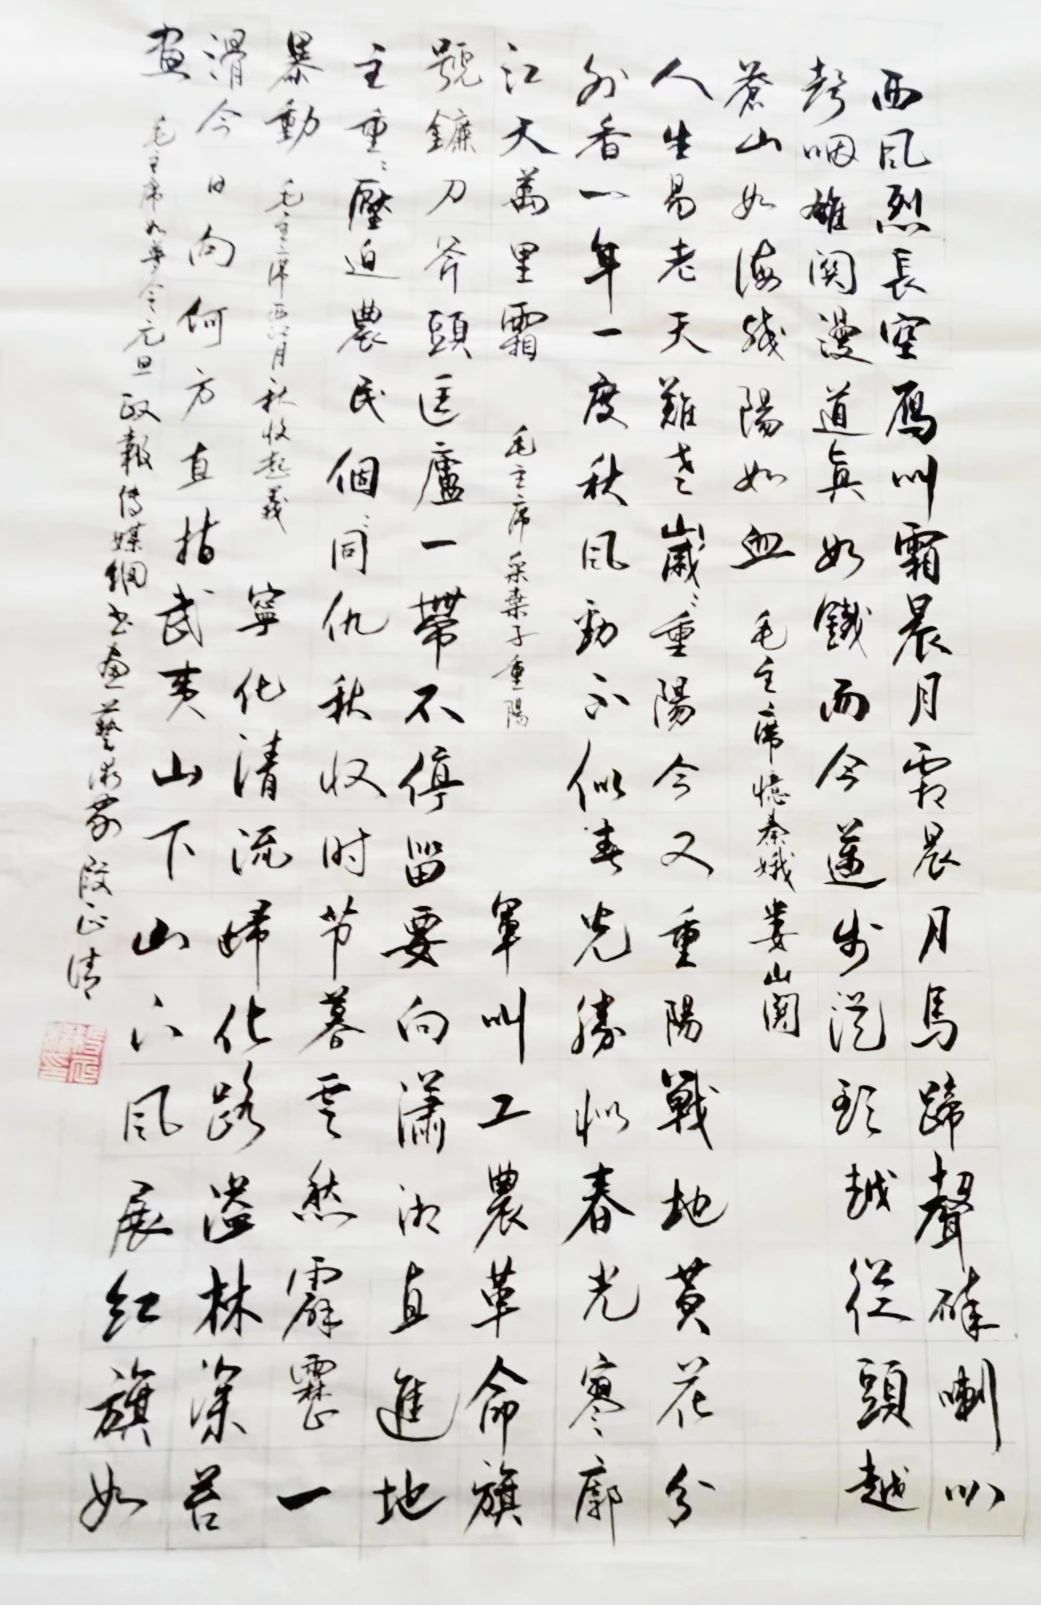 西風烈長空雁叫霜晨月霜晨月馬蹄聲碎喇叭
聲咽雄関漫道真如鐵而今邁步從頭越從頭越
蒼山如海殘陽如血 毛主席憶秦娥婁山関
人生易老天難老歲々重陽今又重陽戰地黄花分
外香一年一度秋風勁不似春光勝似春光寥廓
江天萬里霜 毛主席采桑子重陽 軍叫工農革命旗
號鐮刀斧頭匡廬一帶不停留要向瀟湘直進地
主重々壓迫農民個々同仇秋收时节暮雲愁霹靂一
暴動 毛主席西江月秋收起義 寧化清流歸化路隘林深苔
滑今日向何方直指武夷山下山下風展紅旗如
畫 毛主席如夢令元旦 政報傳媒網书畫藝術家 段正清